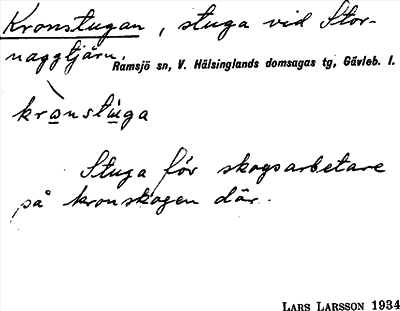 Kronstugan, stuga vid Stor-
naggtjärn.
Ramsjö sn, V. Hälsinglands domsagas tg, Gävleb. l.
kronstuga
Stuga för skogsarbetare
på kronskogen där.
LARS LARSSON 1934